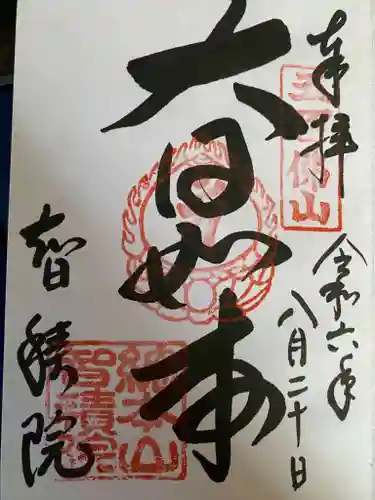 奉拝
令和六年
八月二十日
大日如来
智積院
五百佛山
総本山
智積院